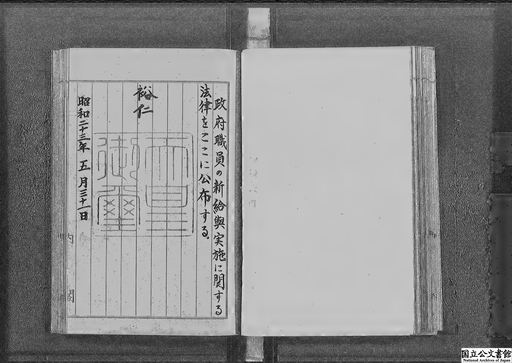 政府職員の新給與実施に関する
法律をここに公布する。
裕仁
天皇
御璽
昭和二十三年五月三十一日
内閣
国立公文書館
National Archives of Japan